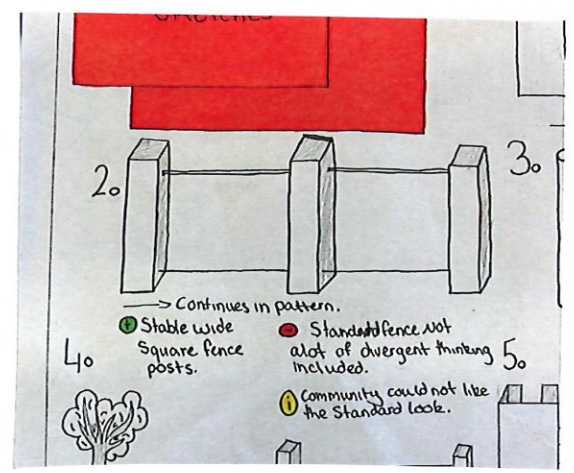 SKETCHES
2.
3.
→ Continues in pattern.
+ Stable wide
Square fence
posts.
- Standard fence not
alot of divergent thinking
included.
i Community could not like
the Standard look.
4.
5.